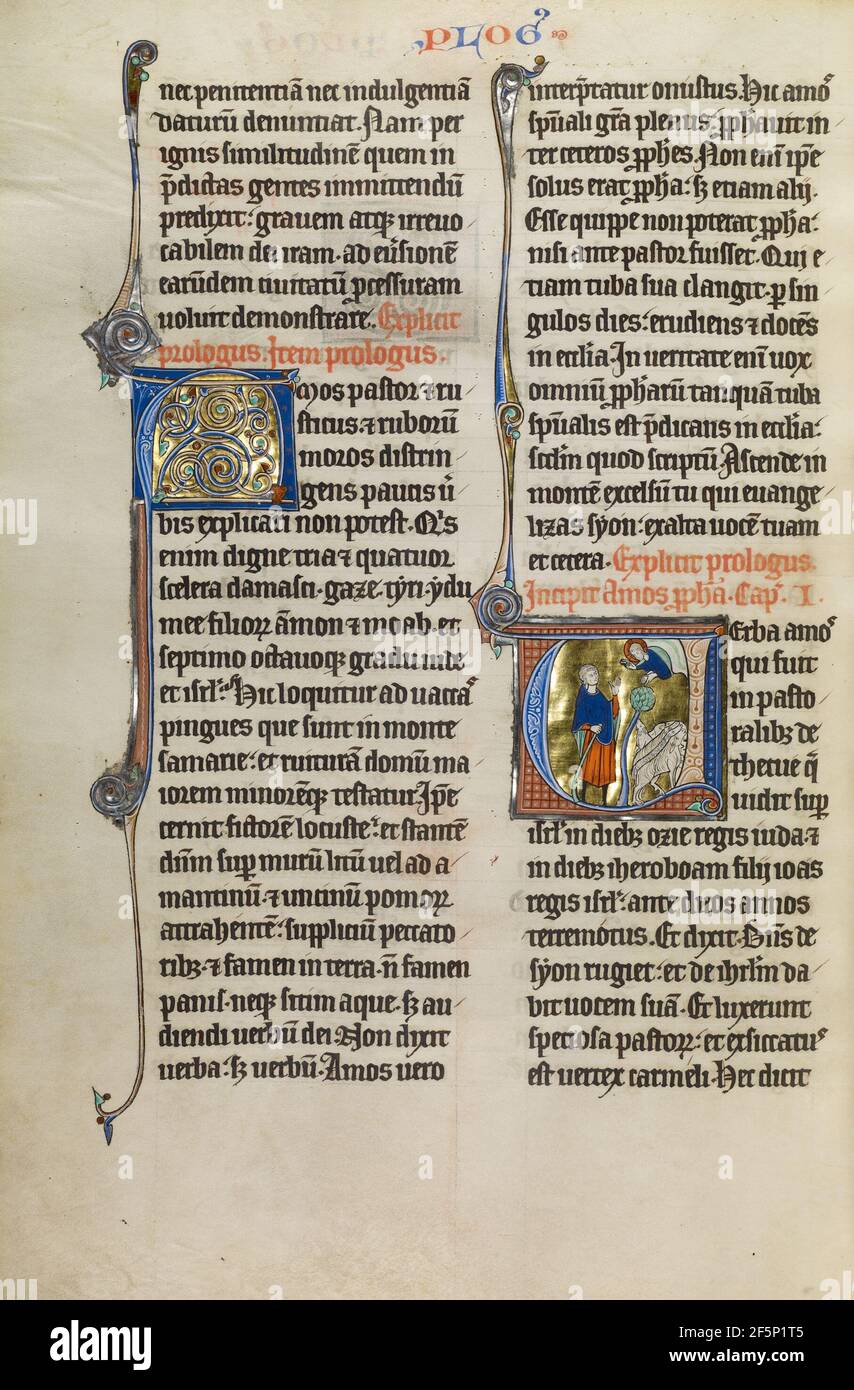 PLOG⁹
nec penitentiā nec indulgentiā
daturū denuntiat. Nam per
ignis similitudinē quem in
p̄dictas gentes immittendū
predixit: grauem atq; irreuo
cabilem dei iram. ad eūsionē
earūdem ciuitatū pcessuram
uoluit demonstrare. Explicit
prologus. Item prologus.
Amos pastor ⁊ ru
sticus. ⁊ ruborū
moros distrin
gens paucis ū
bis explicari non potest. Qⁱs
enim digne tria ⁊ quatuor
scelera damasci. gaze. tyri. ydu
mee filiorꝝ āmon ⁊ moab. et
septimo octauoq; gradu iude
et isrl̄. Hic loquitur ad uaccaˢ
pingues que sunt in monte
samarie: et ruiturā domū ma
iorem minorēq; testatur. Ip̄e
cernit fictorē locuste: et stantē
dn̄m sup murū litū uel ad a
mantinū. ⁊ uncinū pomorꝝ
attrahentē: suppliciū peccato
rib; ⁊ famen in terra. n̄ famen
panis. neq; sitim aque. sꝫ au
diendi uerbū dei. Non dixit
uerba. sꝫ uerbū. Amos uero
interp̄tatur onustus. Hic amoˢ
sp̄uali gr̄a plenus. ꝓph̄auit in
ter ceteros ꝓph̄es. Non eni ip̄e
solus erat ꝓph̄a: sꝫ etiam alij.
Esse quippe non poterat ꝓph̄a:
nisi ante pastor fuisset. Qui e
tiam tuba sua clangit. ꝑ sin
gulos dies: erudiens ⁊ docēs
in eccl̄ia. In ueritate eni uox
omniū ꝓph̄arū tanquā tuba
sp̄ualis est p̄dicans in eccl̄ia:
scd̄m quod scriptū Ascende in
montē excelsū tu qui euange
lizas syon: exalta uocē tuam
et cetera. Explicit prologus.
Incipit Amos ꝓph̄a. Cap̄. I.
Verba amoˢ
qui fuit
in pasto
ralib; de
thecue q̄
uidit sup
isrl̄ in dieb; ozie regis iuda. ⁊
in dieb; iheroboam filij ioas
regis isrl̄: ante duos annos
terremotus. Et dixit. Dn̄s de
syon rugiet: et de ihrl̄m da
bit uocem suā. Et luxerunt
speciosa pastorꝝ: et exsiccatuˢ
est uertex carmeli. Hec dicit
alamy
a
alamy
Image ID: 2F5P1T5
www.alamy.com